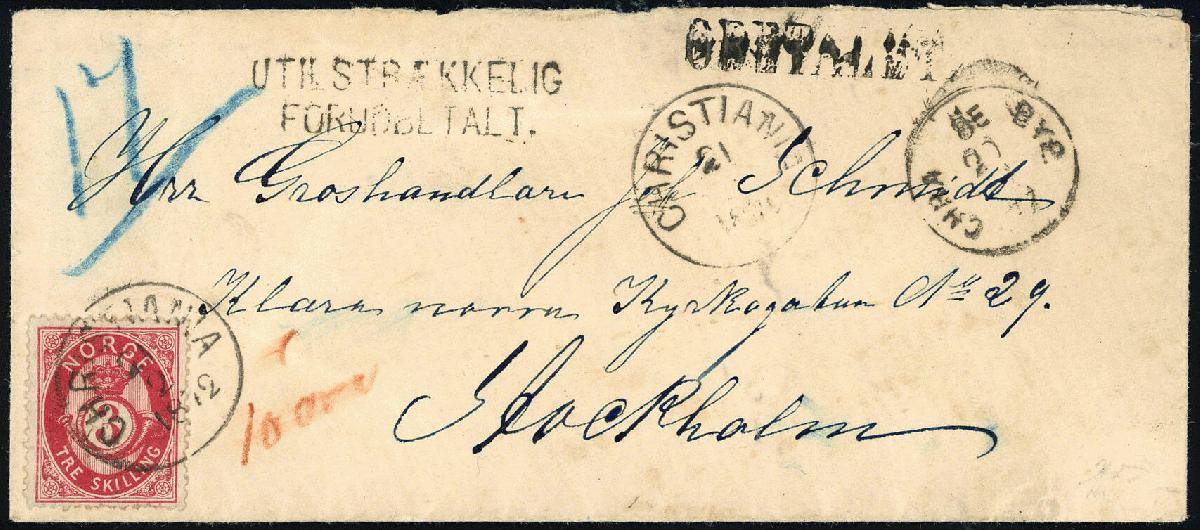 17
UTILSTRÆKKELIG
FORUDBETALT.
CHRISTIANIA
13
BYP
CHRA
Herr Groshandlare Schmidt
Klara norra Kyrkogatan No 29.
Stockholm
10 öre
CHRISTIANIA
NORGE
3
TRE SKILLING